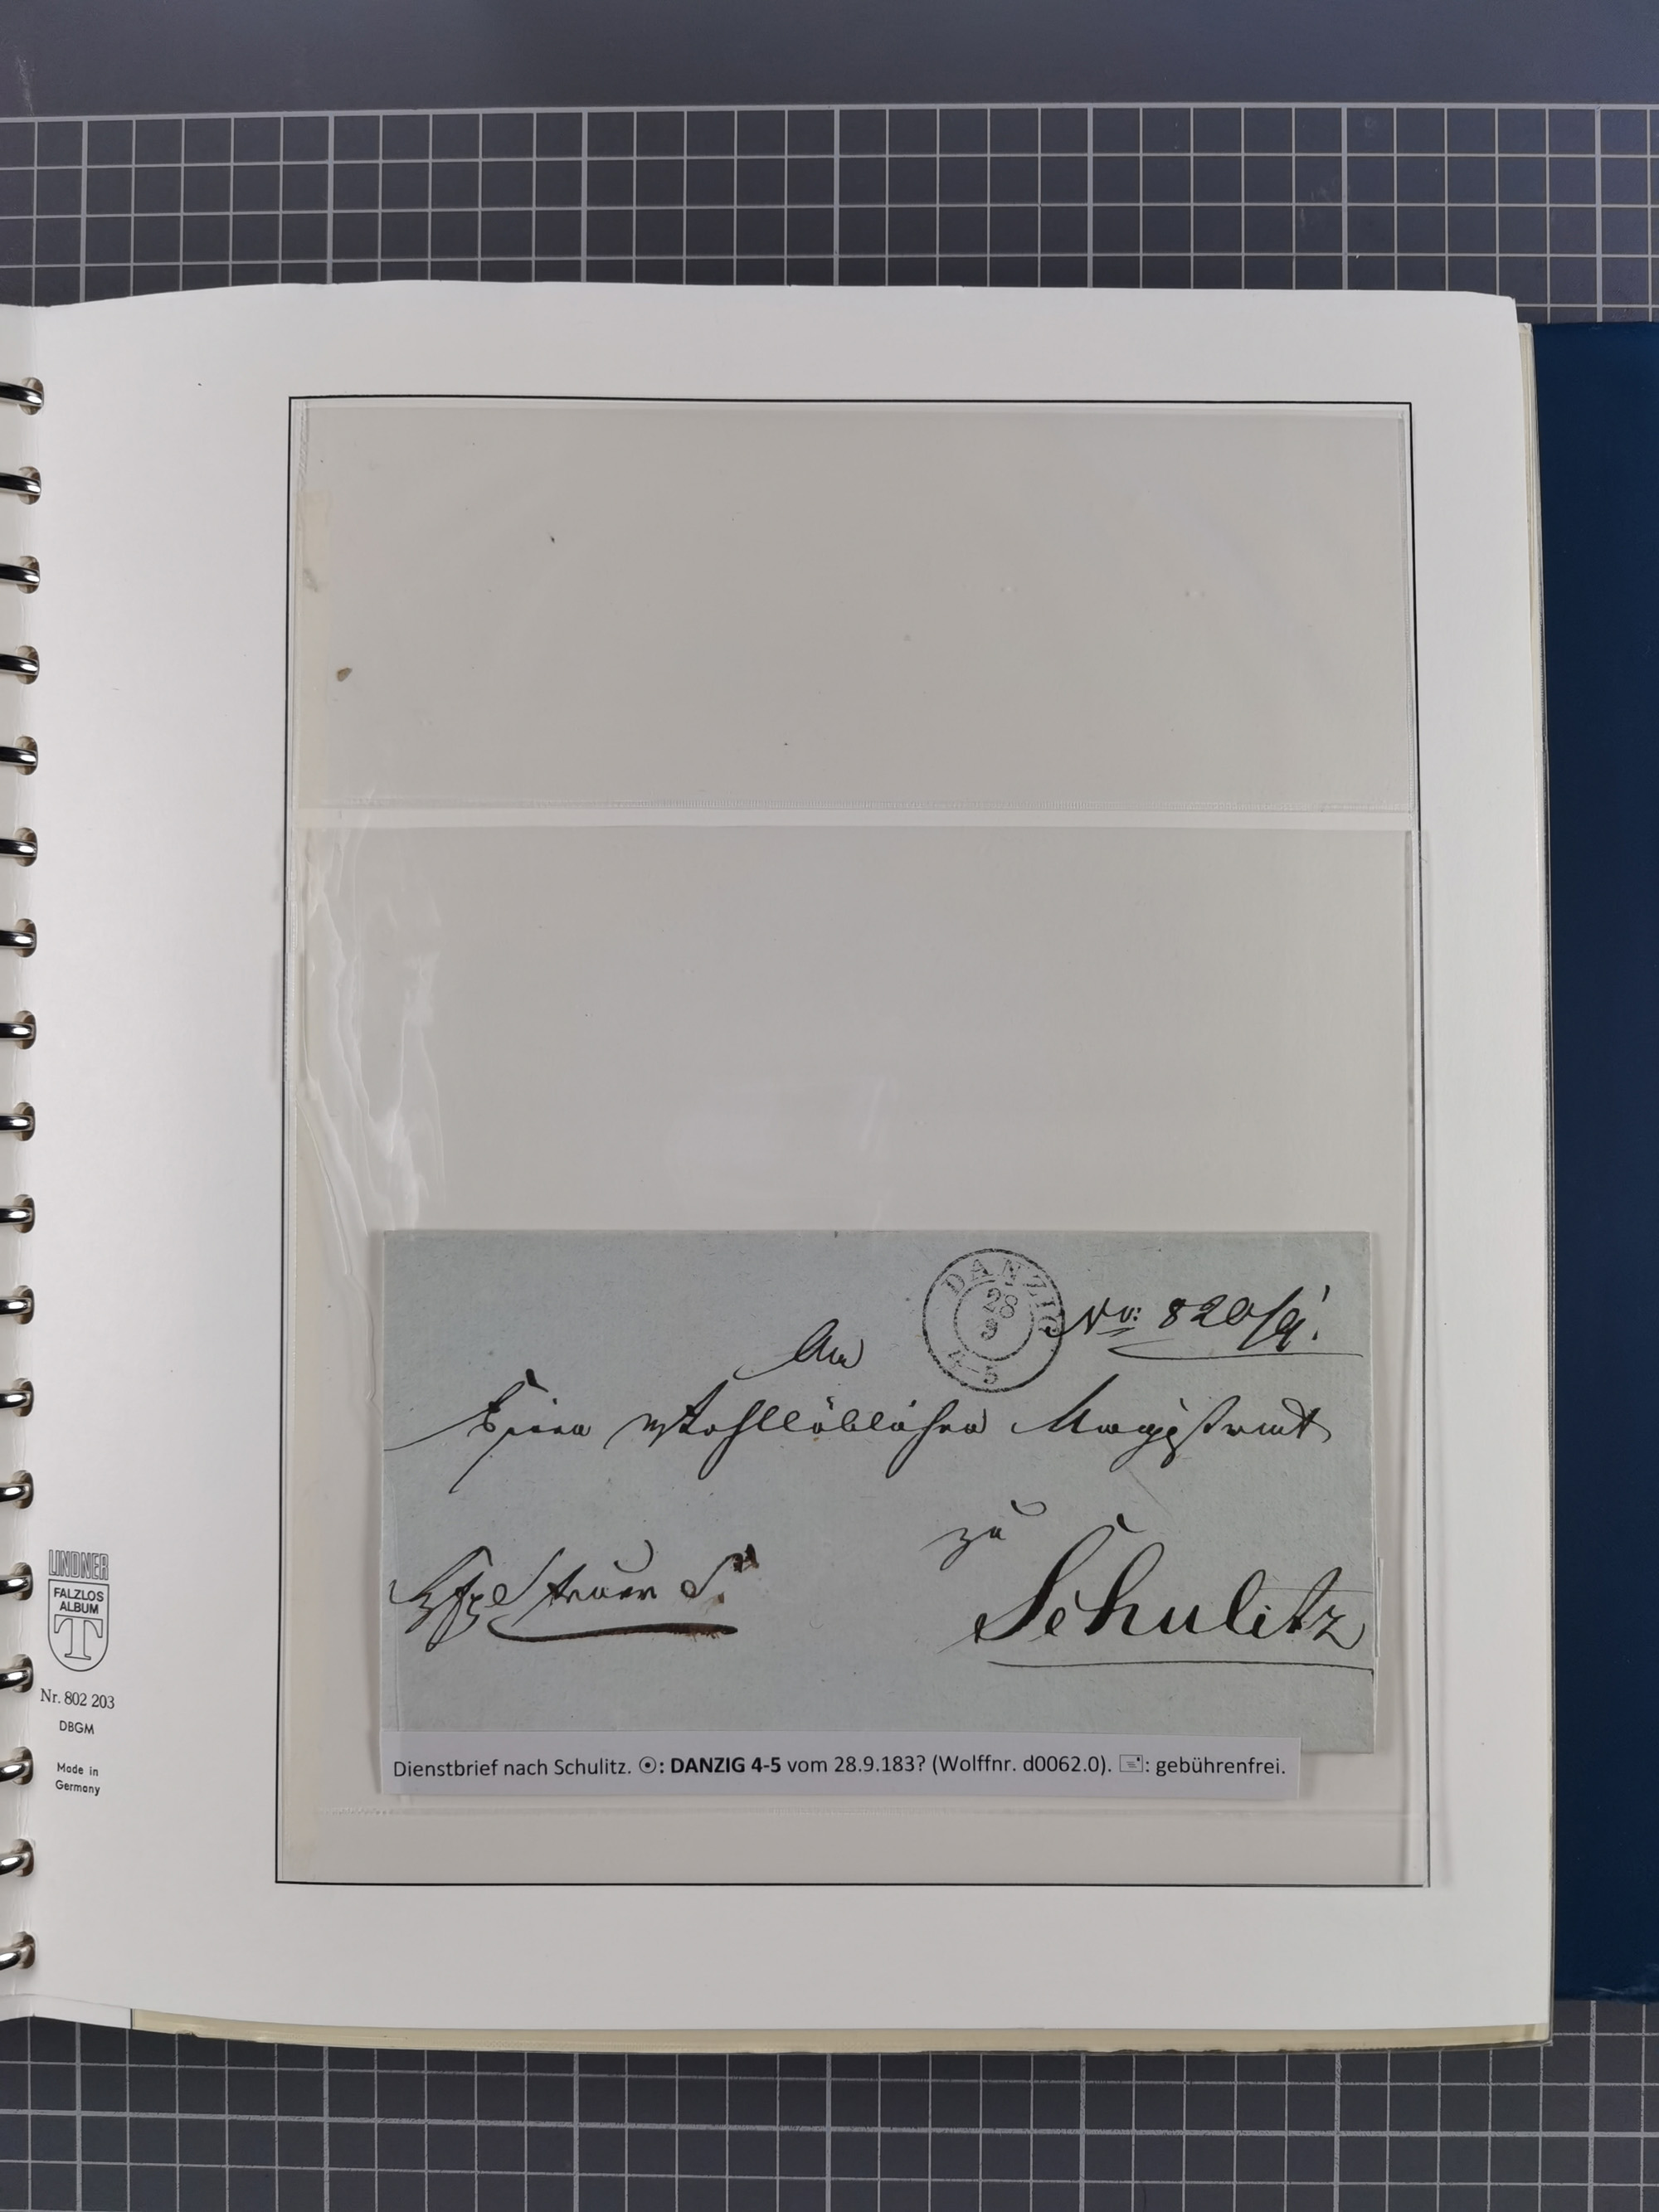 DANZIG
28
9
4-5
No: 820/9!
An
Einen Wohllöblichen Magistrat
zu
Schulitz
LINDNER
FALZLOS
ALBUM
T
Nr. 802 203
DBGM
Made in
Germany
Dienstbrief nach Schulitz. ☉: DANZIG 4-5 vom 28.9.183? (Wolffnr. d0062.0). 🖃: gebührenfrei.